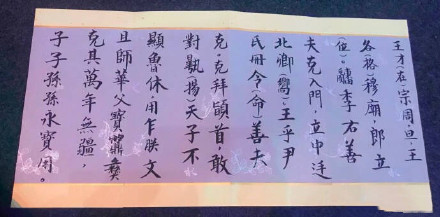 王才（在）宗周，旦，王
各（格）穆廟，即立
（位），䌛季右善
夫克入門，立中廷
北卿（嚮），王乎尹
氏冊令（命）善夫
克。克拜䭫首，敢
對䫻（揚）天子不
顯魯休，用乍朕文
且師華父寶鼎彝
克其萬年無疆，
子子孫孫永寶用。